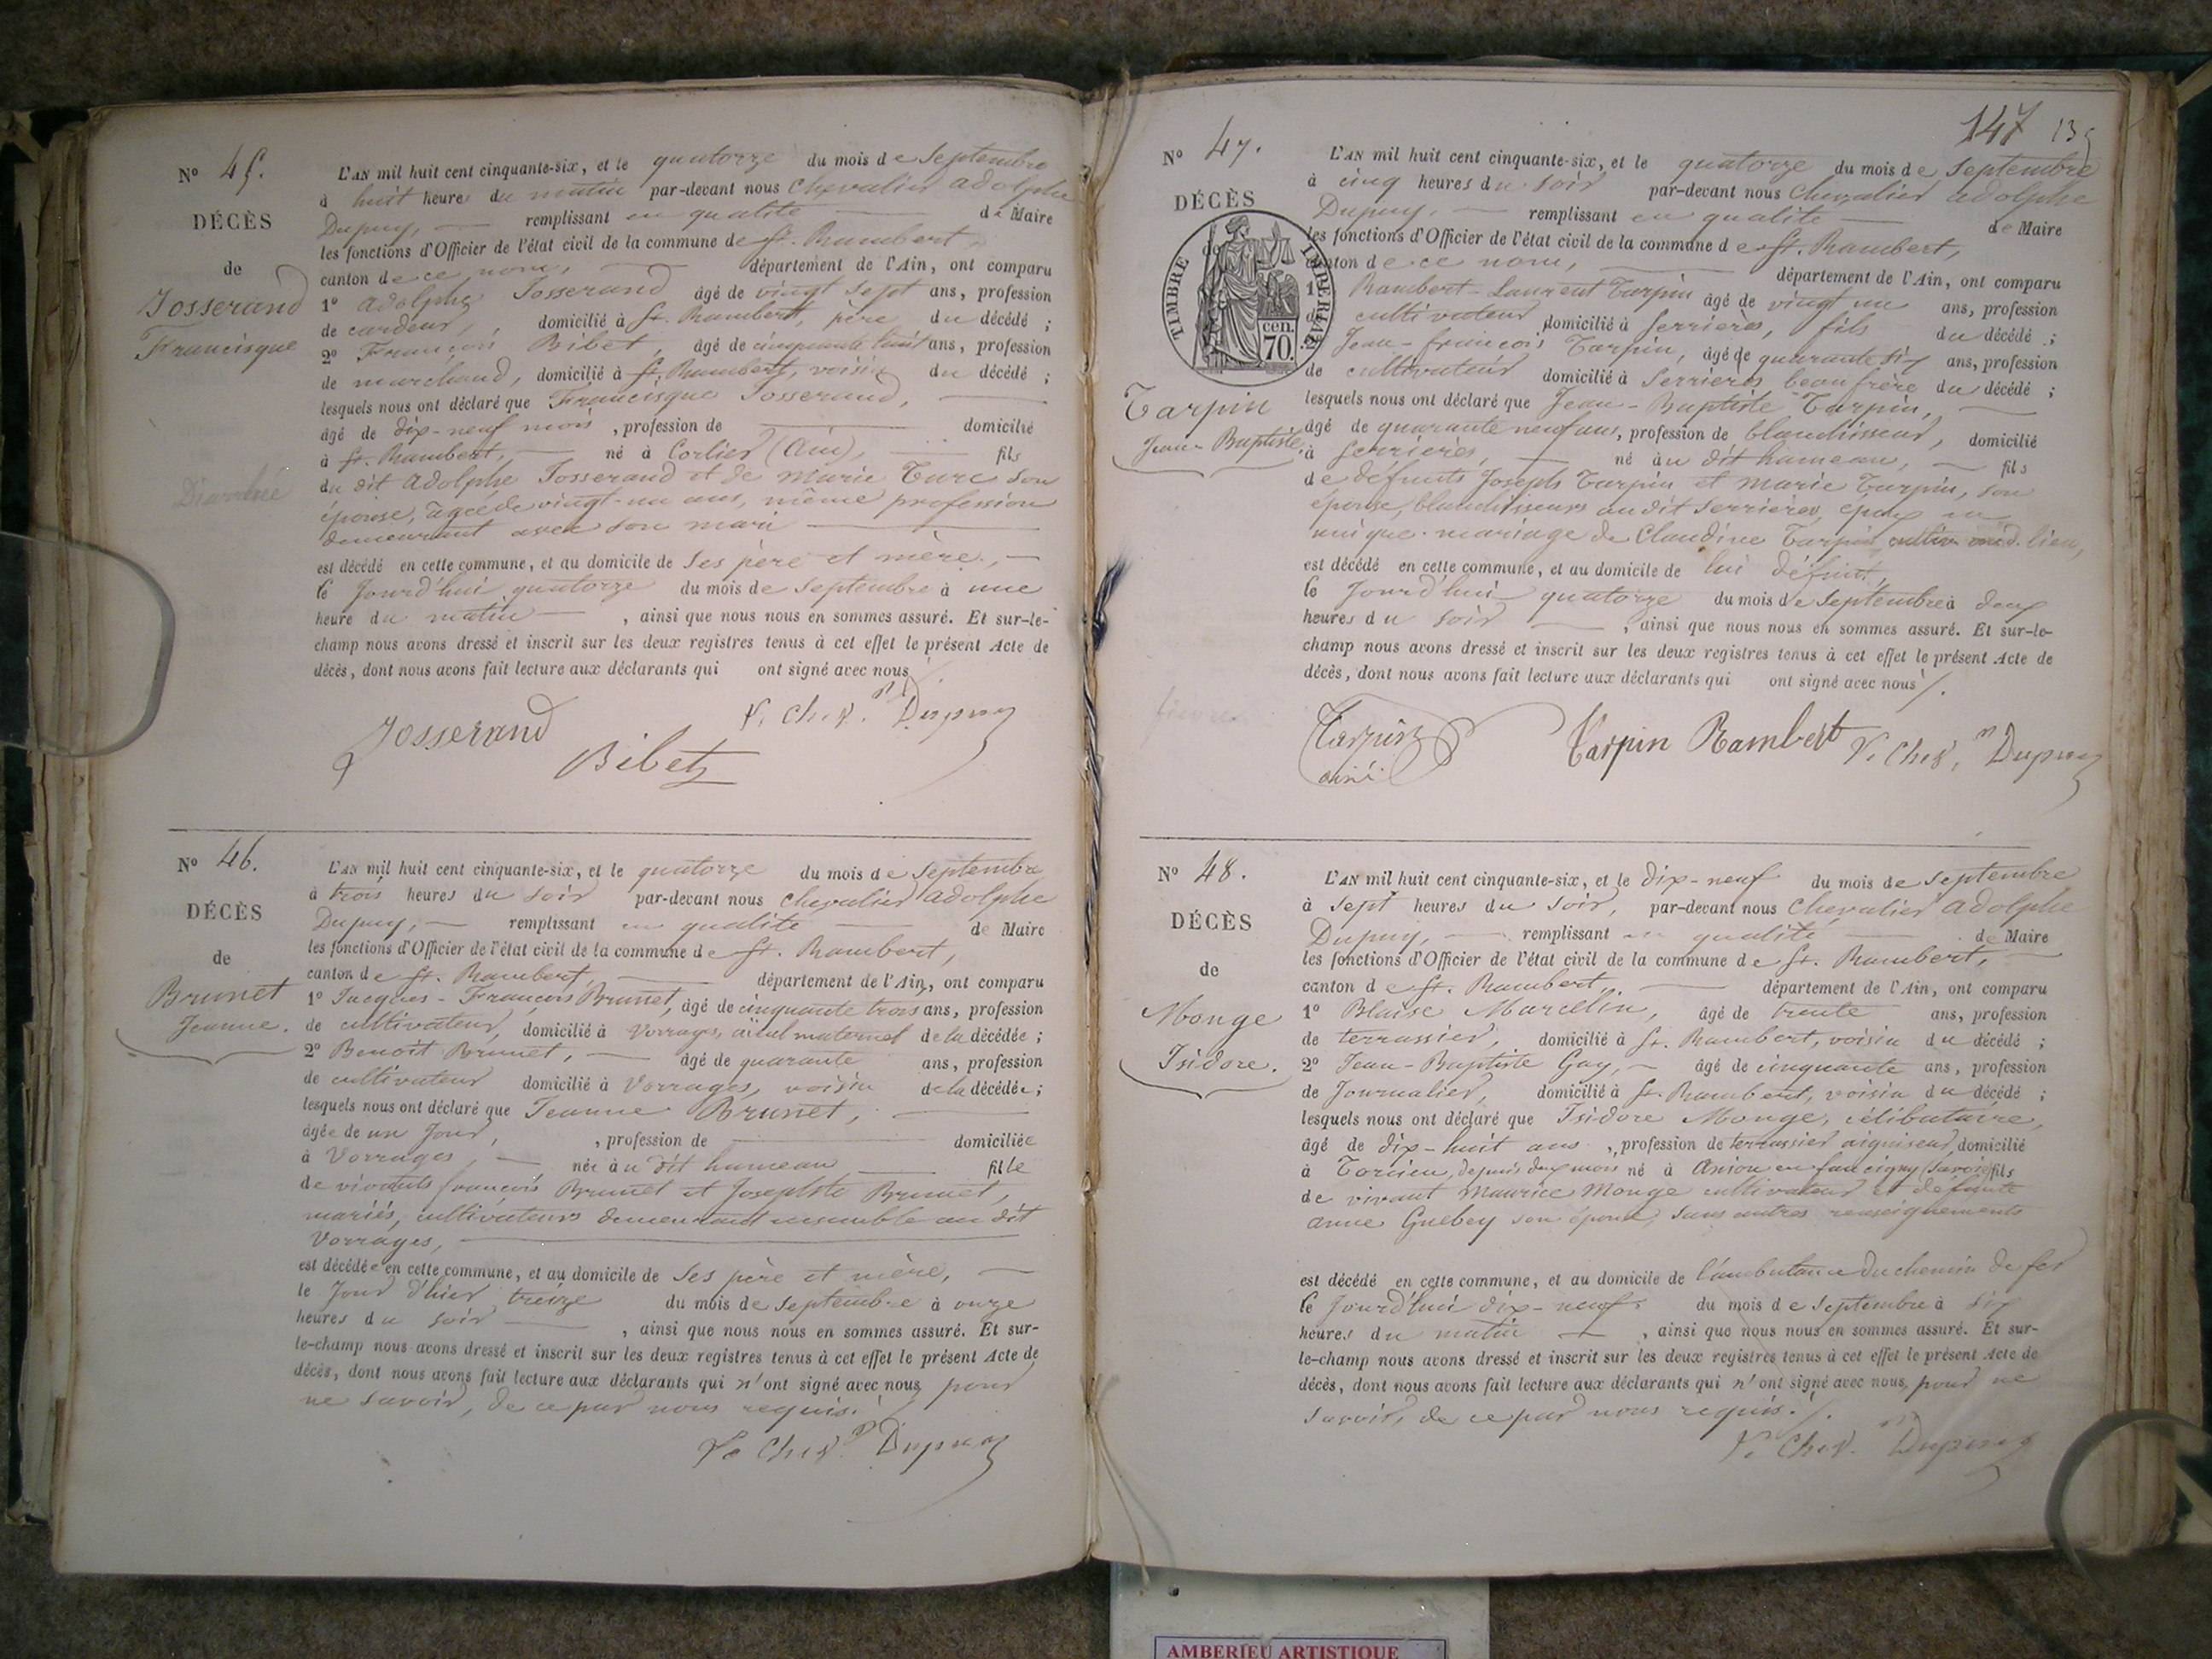 N° 45.
DÉCÈS
de
Josserand
Francisque
Diarrhée
L'AN mil huit cent cinquante-six, et le quatorze du mois de Septembre
à huit heures du matin par-devant nous Chevalier adolphe
Dupuy, remplissant en qualité de Maire
les fonctions d'Officier de l'état civil de la commune de St. Rambert,
canton de ce nom, département de l'Ain, ont comparu
1° adolphe Josserand âgé de vingt sept ans, profession
de cardeur, domicilié à St. Rambert, père du décédé ;
2° François Bibet, âgé de cinquante huit ans, profession
de marchand, domicilié à St. Rambert, voisin du décédé ;
lesquels nous ont déclaré que Francisque Josserand,
âgé de dix-neuf mois, profession de domicilié
à St. Rambert, né à Corlier (Ain), fils
du dit Adolphe Josserand et de Marie Turc son
épouse, âgée de vingt-un ans, même profession
demeurant avec son mari
est décédé en cette commune, et au domicile de ses père et mère,
le Jourd'hui quatorze du mois de Septembre à une
heure du matin, ainsi que nous nous en sommes assuré. Et sur-le-
champ nous avons dressé et inscrit sur les deux registres tenus à cet effet le présent Acte de
décès, dont nous avons fait lecture aux déclarants qui ont signé avec nous
Josserand
Bibet
Chev. Dupuy
N° 46.
DÉCÈS
de
Brunet
Jeanne.
L'AN mil huit cent cinquante-six, et le quatorze du mois de Septembre
à trois heures du soir par-devant nous Chevalier adolphe
Dupuy, remplissant en qualité de Maire
les fonctions d'Officier de l'état civil de la commune de St. Rambert,
canton de St. Rambert, département de l'Ain, ont comparu
1° Jacques-François Brunet, âgé de cinquante trois ans, profession
de cultivateur, domicilié à Vorrages, aïeul maternel de la décédée ;
2° Benoit Brunet, âgé de quarante ans, profession
de cultivateur domicilié à Vorrages, voisin de la décédée ;
lesquels nous ont déclaré que Jeanne Brunet,
âgée de un Jour, , profession de domiciliée
à Vorrages, née à u dit hameau fille
de vivants françois Brunet et Josephte Brunet,
mariés, cultivateurs demeurant ensemble au dit
Vorrages,
est décédée en cette commune, et au domicile de ses père et mère,
le Jour d'hier treize du mois de Septembre à onze
heures du soir, ainsi que nous nous en sommes assuré. Et sur-
le-champ nous avons dressé et inscrit sur les deux registres tenus à cet effet le présent Acte de
décès, dont nous avons fait lecture aux déclarants qui n'ont signé avec nous pour
ne savoir, de ce par nous requis.
Chev. Dupuy
147
N° 47.
DÉCÈS
de
TIMBRE IMPERIAL
cen.
70.
Tarpin
Jean-Baptiste.
fièvre
L'AN mil huit cent cinquante-six, et le quatorze du mois de Septembre
à cinq heures du soir par-devant nous Chevalier adolphe
Dupuy, remplissant en qualité de Maire
les fonctions d'Officier de l'état civil de la commune de St. Rambert,
canton de ce nom, département de l'Ain, ont comparu
1° Rambert-Laurent Tarpin âgé de vingt un ans, profession
de cultivateur domicilié à Serrières, fils du décédé ;
Jean-françois Tarpin, âgé de quarante six ans, profession
de cultivateur domicilié à Serrières beau frère du décédé ;
lesquels nous ont déclaré que Jean-Baptiste Tarpin,
âgé de quarante neuf ans, profession de blanchisseur, domicilié
à Serrières, né à u dit hameau, fils
de défunts Joseph Tarpin et Marie Tarpin, son
épouse, blanchisseurs au dit Serrières, époux en
unique mariage de Claudine Tarpin d. lieu,
est décédé en cette commune, et au domicile de lui défunt,
le Jourd'hui quatorze du mois de Septembre à deux
heures du soir, ainsi que nous nous en sommes assuré. Et sur-le-
champ nous avons dressé et inscrit sur les deux registres tenus à cet effet le présent Acte de
décès, dont nous avons fait lecture aux déclarants qui ont signé avec nous
Tarpin
ainé
Tarpin Rambert
Chev. Dupuy
N° 48.
DÉCÈS
de
Monge
Isidore.
L'AN mil huit cent cinquante-six, et le dix-neuf du mois de Septembre
à sept heures du soir, par-devant nous Chevalier adolphe
Dupuy, remplissant en qualité de Maire
les fonctions d'Officier de l'état civil de la commune de St. Rambert,
canton de St. Rambert, département de l'Ain, ont comparu
1° Blaise Marcellin, âgé de trente ans, profession
de terrassier, domicilié à St. Rambert, voisin du décédé ;
2° Jean-Baptiste Gay, âgé de cinquante ans, profession
de Journalier, domicilié à St. Rambert, voisin du décédé ;
lesquels nous ont déclaré que Isidore Monge, célibataire,
âgé de dix-huit ans, profession de terrassier aiguiseur domicilié
à Torcieu, depuis deux mois né à Anion en faucigny (Savoie) fils
de vivant Maurice Monge cultivateur et défunte
anne Guebey son épouse, sans autres renseignements
est décédé en cette commune, et au domicile de l'ambulance du chemin de fer
le Jourd'hui dix-neuf du mois de Septembre à six
heures du matin, ainsi que nous nous en sommes assuré. Et sur-
le-champ nous avons dressé et inscrit sur les deux registres tenus à cet effet le présent Acte de
décès, dont nous avons fait lecture aux déclarants qui n'ont signé avec nous, pour ne
savoir, de ce par nous requis.
Chev. Dupuy
AMBERIEU ARTISTIQUE